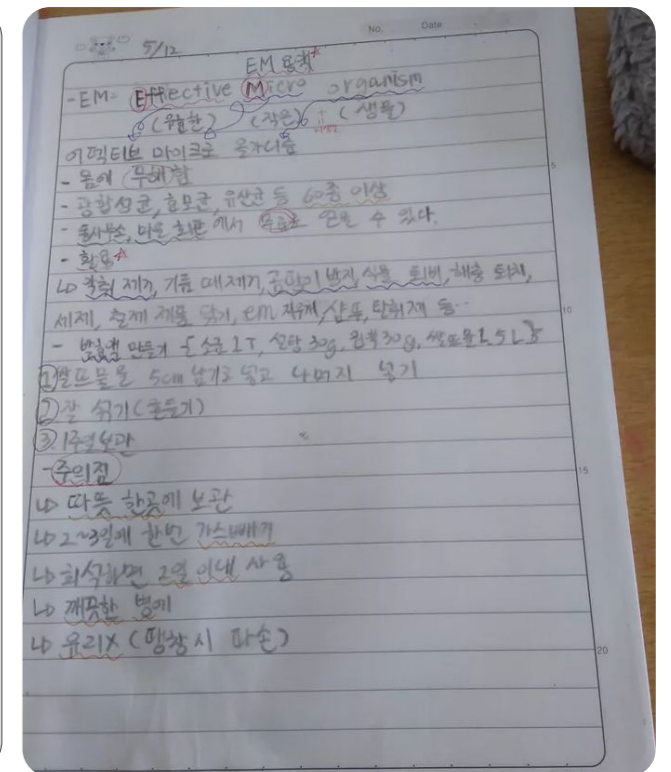 No. Date
5/12
EM 용액*
- EM = Effective Micro organism
(유용한) (작은) (생물)
이펙티브 마이크로 올가니즘
- 몸에 무해함
- 광합성균, 효모균, 유산균 등 60종 이상
- 동사무손, 마을 회관에서 무료로 얻을 수 있다.
- 활용*
↳ 악취 제거, 기름 때제거, 곰팡이 방지, 식물 퇴비, 해충 퇴치,
세제, 은제 제품 닦기, em 지우개, 샴푸, 탈취제 등…
- 발효액 만들기 { 소금 1T, 설탕 30g, 원액 30g, 쌀뜨물 1.5L }
① 쌀뜨물을 5cm 남기고 넣고 나머지 넣기
② 잘 섞기(흔들기)
③ 1주일 보관
- 주의점
↳ 따뜻 한곳에 보관
↳ 2~3일에 한번 가스빼기
↳ 희석하면 2일 이내 사용
↳ 깨끗한 병에
↳ 유리X (팽창시 파손)
5
10
15
20